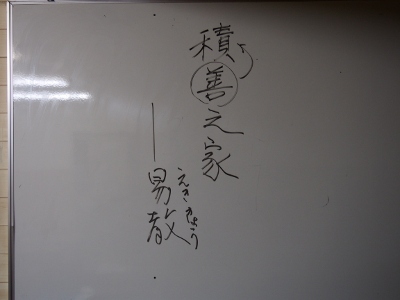 積善之家
——易教
えききょう